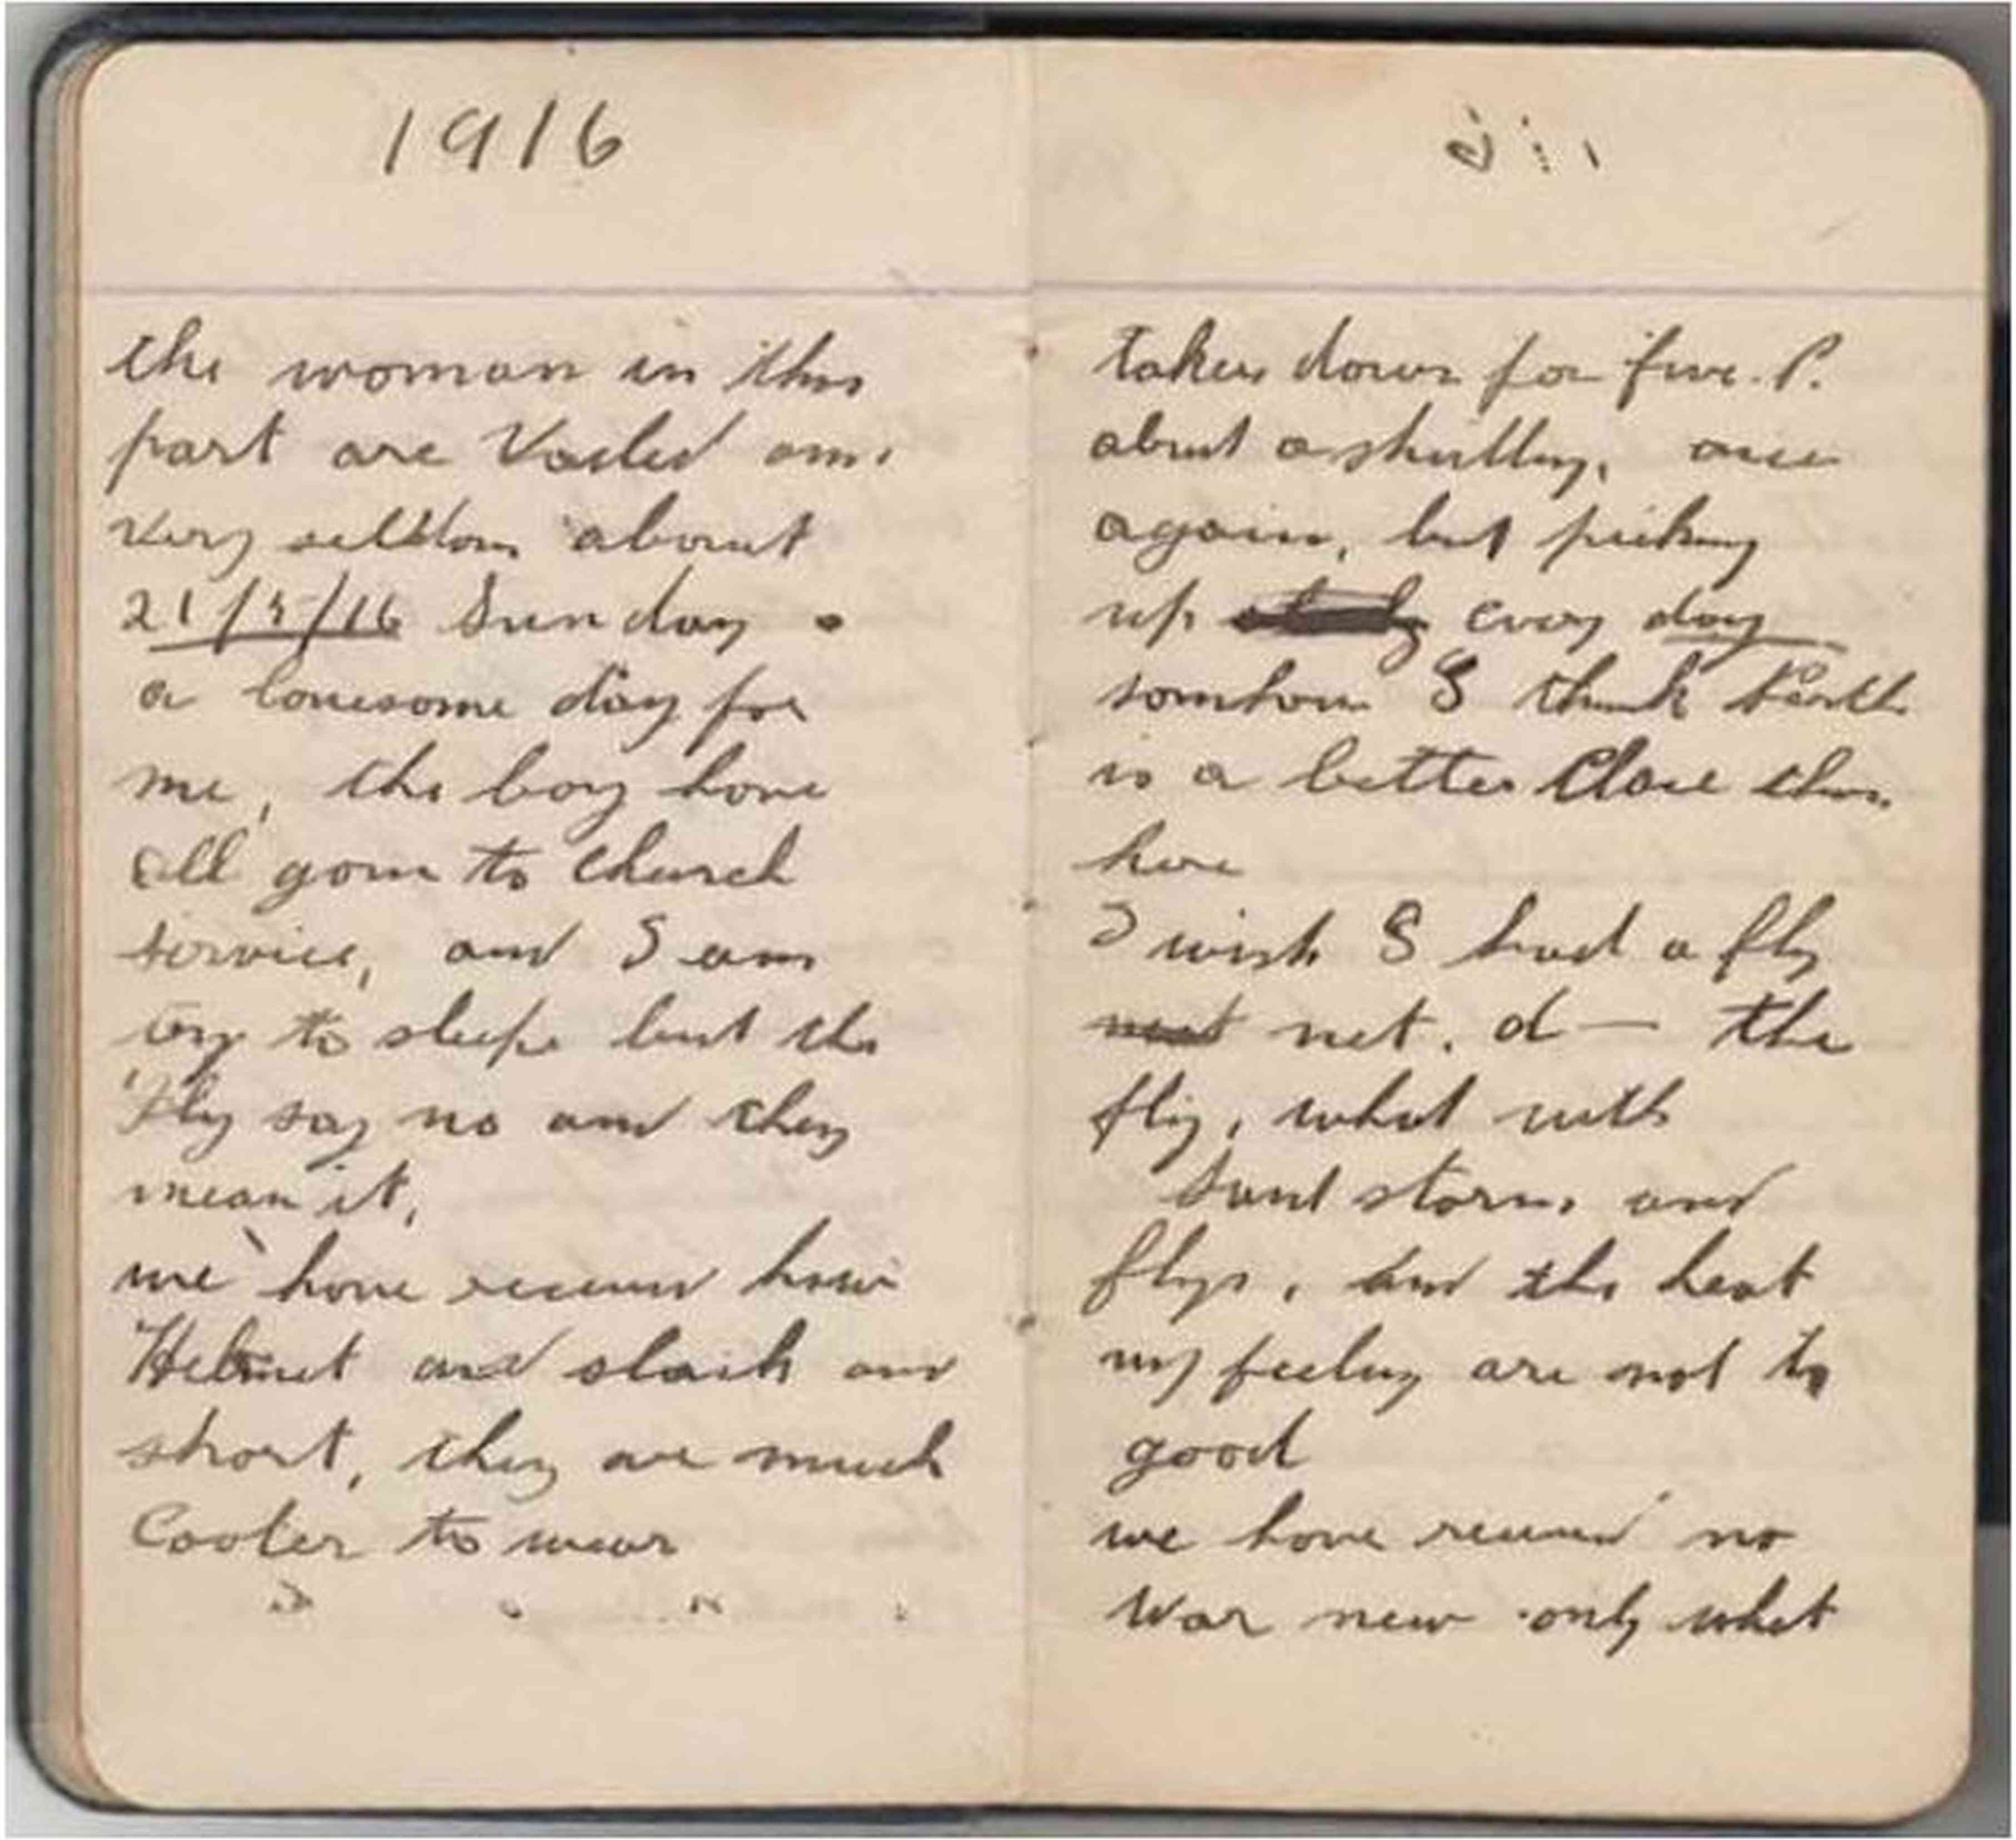 1916
the woman in this
part are Vailed and
veryselldom about
21/5/16 Sunday
a lonesome day for
me, the boy have
all gone to church
service, and I am
try to sleep but the
Fly say no and they
mean it,
we have received
Helmet and slack and
short, they are much
Cooler to wear
taken down for five. P.
about a shilling, once
again, but picking
up every day
somhow I think Perth
is a better Place than
here
I wish I had a fly
net. d — the
fly, what with
Sand storm, and
flys, and the heat
my feeling are not to
good
we have received no
War new only what